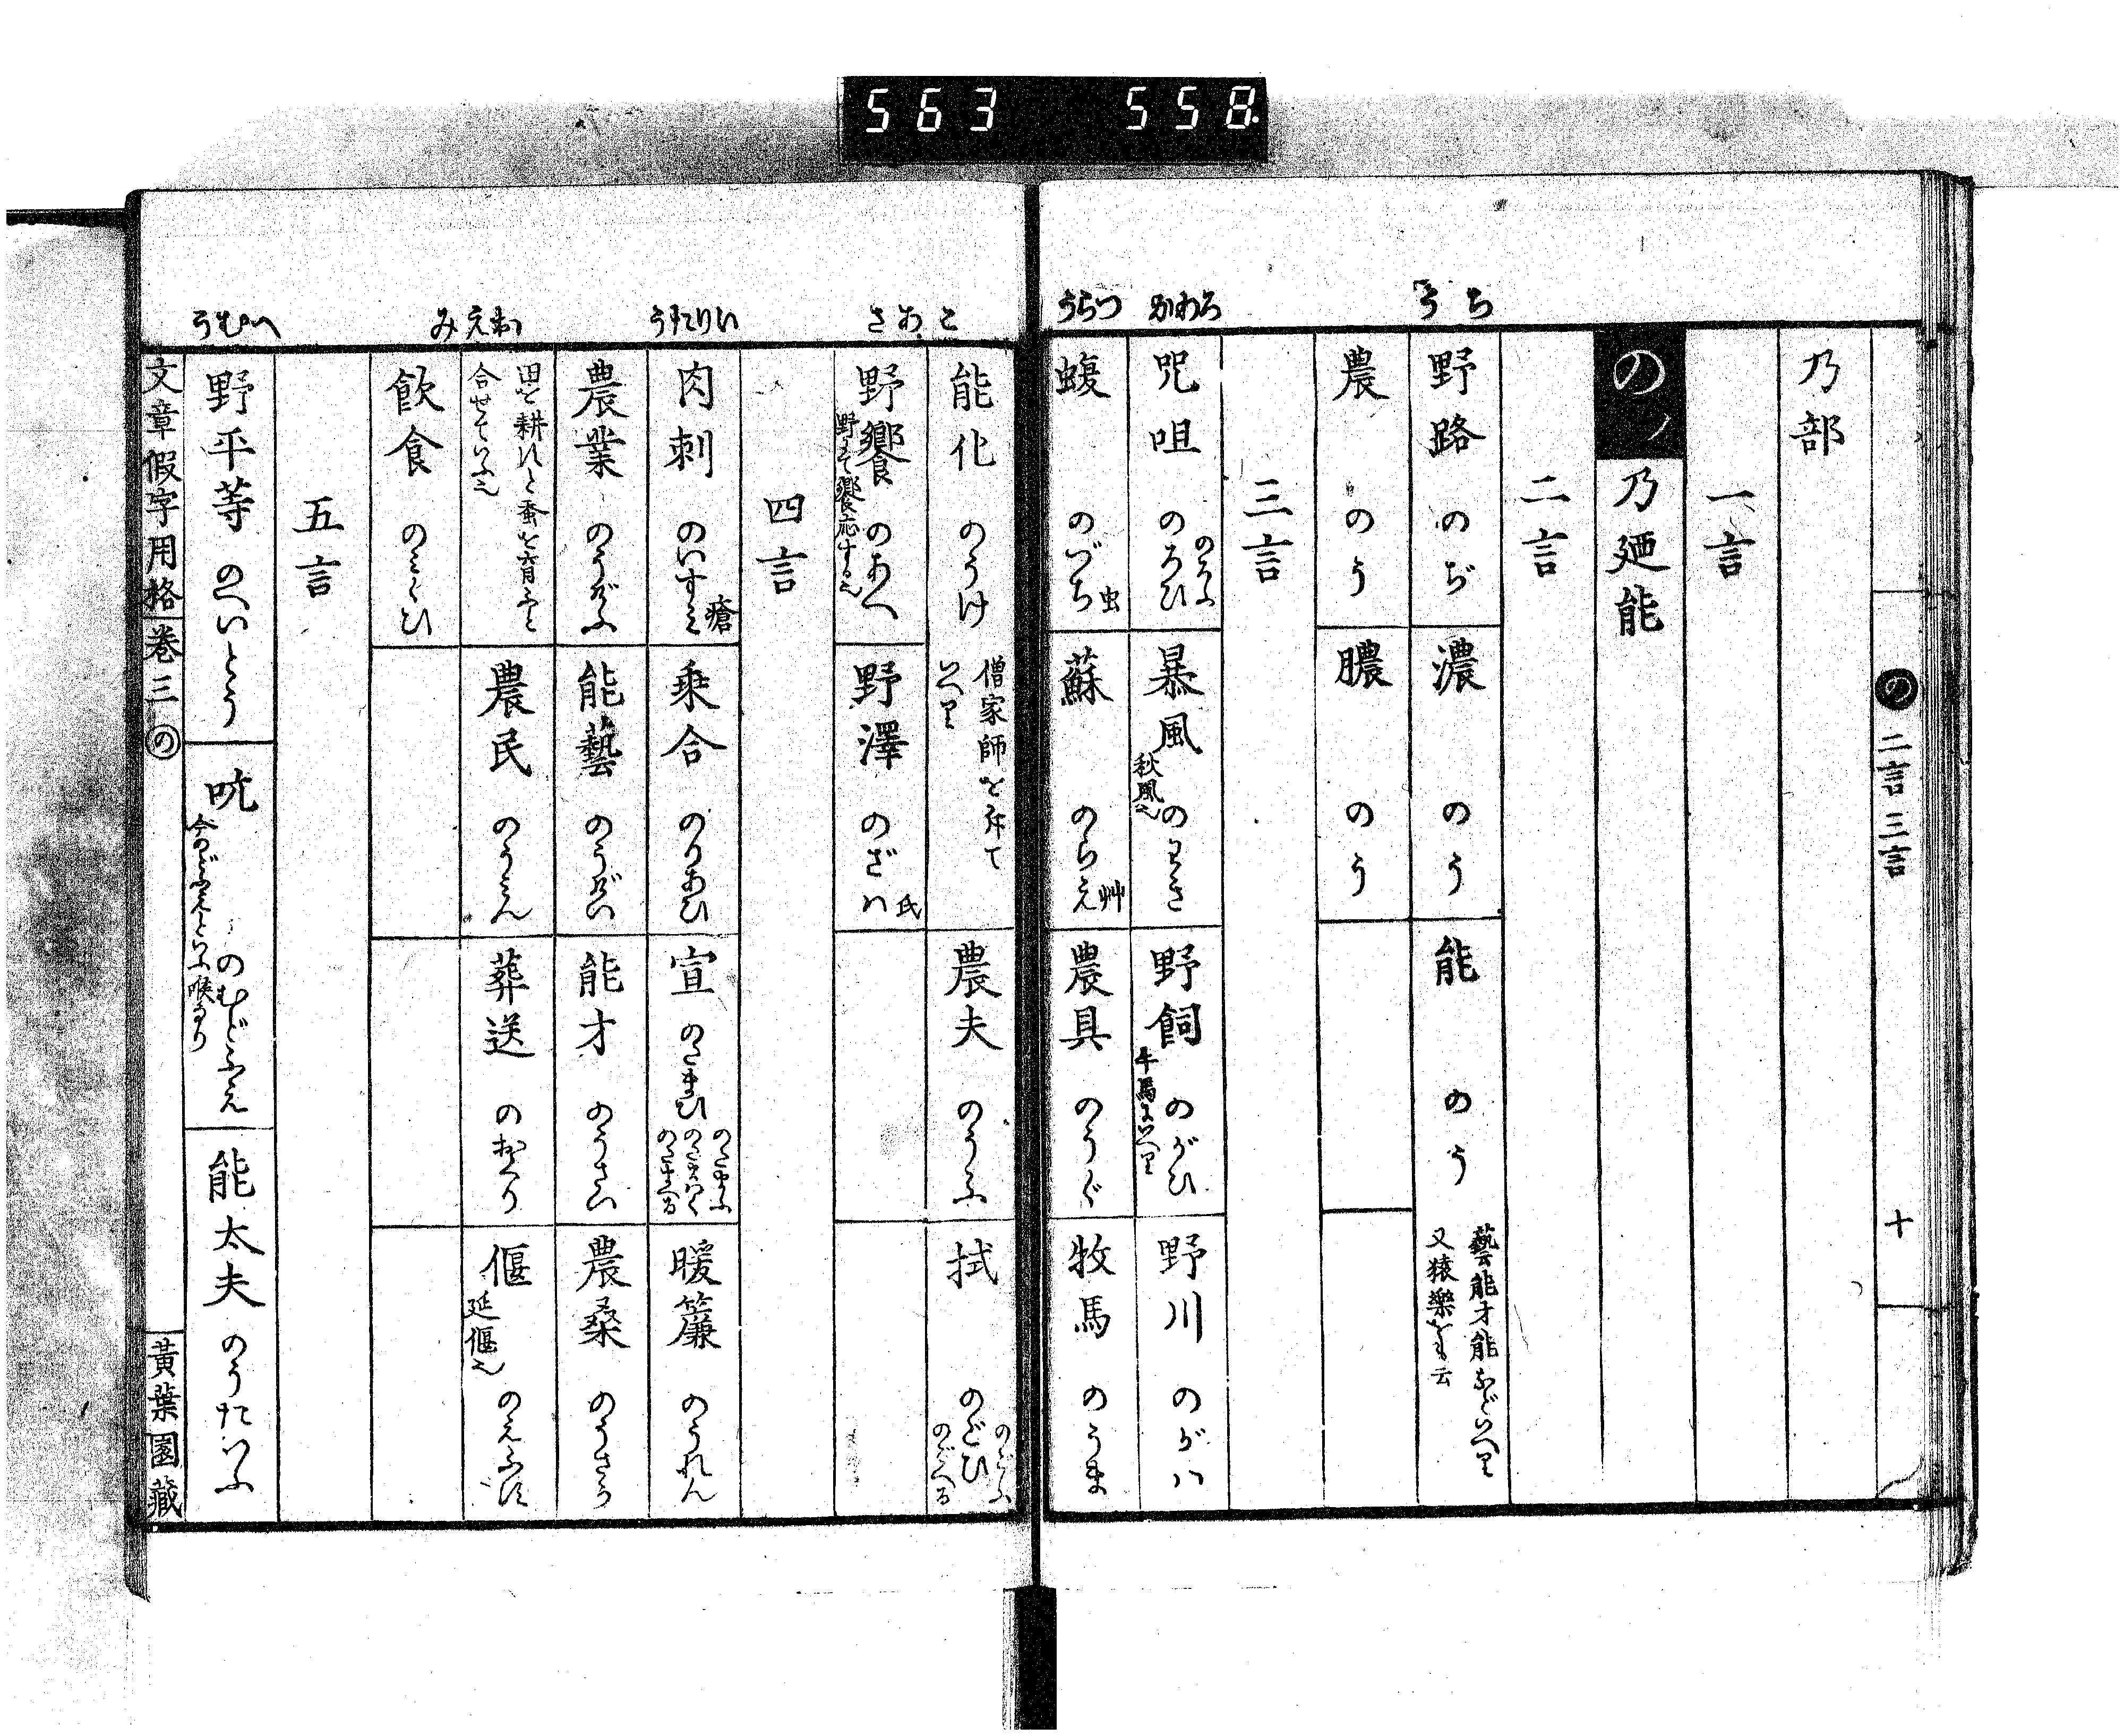 563 558
の 二言 三言 十
ち う
ろ わ か
つ ら う
乃部
一言
のノ 乃廼能
二言
野路 のぢ
濃 のう
能 のう 藝能才能などいへり
又猿樂をも云
農 のう
膿 のう
三言
咒咀 のろひ のろふ
暴風 のわき 秋風也
野飼 のがひ 牛馬にいへり
野川 のがハ
蝮 のづち 虫
蘇 のらえ 艸
農具 のうぐ
牧馬 のうま
こ あ さ
いりたう
おえみ
へむう
能化 のうけ 僧家師を称て
いへり
農夫 のうふ
拭 のごひ のごふ
のごへる
野饗 のあへ 野にて饗応する也
野澤 のざハ 氏
四言
肉刺 のいすミ 瘡
乗合 のりあひ
宣 のたまひ のたまふ
のたまはく
のたまへる
暖簾 のうれん
農業 のうげふ
田を耕すと蚕を育ふと
合せていふ也
能藝 のうげい
能才 のうさい
農桑 のうさう
農民 のうミん
葬送 のおくり
偃 のえふす 延偃也
飲食 のミくひ
五言
野平等 のへいとう
吭 のむどふえ
今のどぶえといふ喉なり
能太夫 のうたいふ
文章假字用格 巻三 の 黄葉園藏